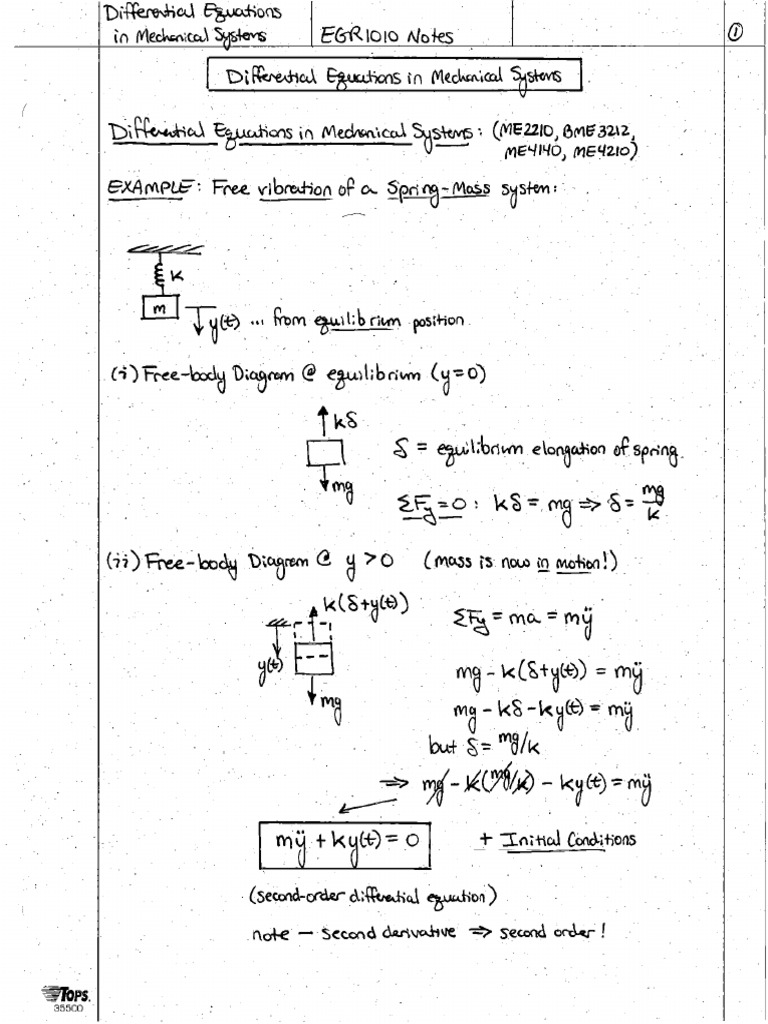 Differential Equations
in Mechanical Systems
EGR1010 Notes
1
Differential Equations in Mechanical Systems
Differential Equations in Mechanical Systems: (ME2210, BME3212,
ME4140, ME4210)
EXAMPLE: Free vibration of a Spring-Mass system:
k
m
y(t) ... from equilibrium position
(i) Free-body Diagram @ equilibrium (y=0)
kδ
δ = equilibrium elongation of spring.
mg
ΣFy=0: kδ = mg ⇒ δ = mg/k
(ii) Free-body Diagram @ y > 0 (mass is now in motion!)
k(δ+y(t))
ΣFy = ma = mÿ
y(t)
mg - k(δ+y(t)) = mÿ
mg
mg - kδ - ky(t) = mÿ
but δ = mg/k
⇒ mg - k(mg/k) - ky(t) = mÿ
mÿ + ky(t) = 0 + Initial Conditions
(second-order differential equation)
note – second derivative ⇒ second order!
TOPS.
35500